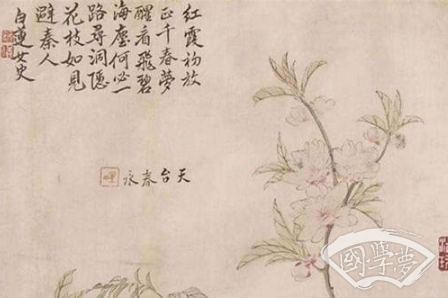 紅霞初放
正千春夢
醒看飛碧
海塵何必一
路尋洞隱
花枝如見
避秦人
白蓮女史
天台春永
國學夢